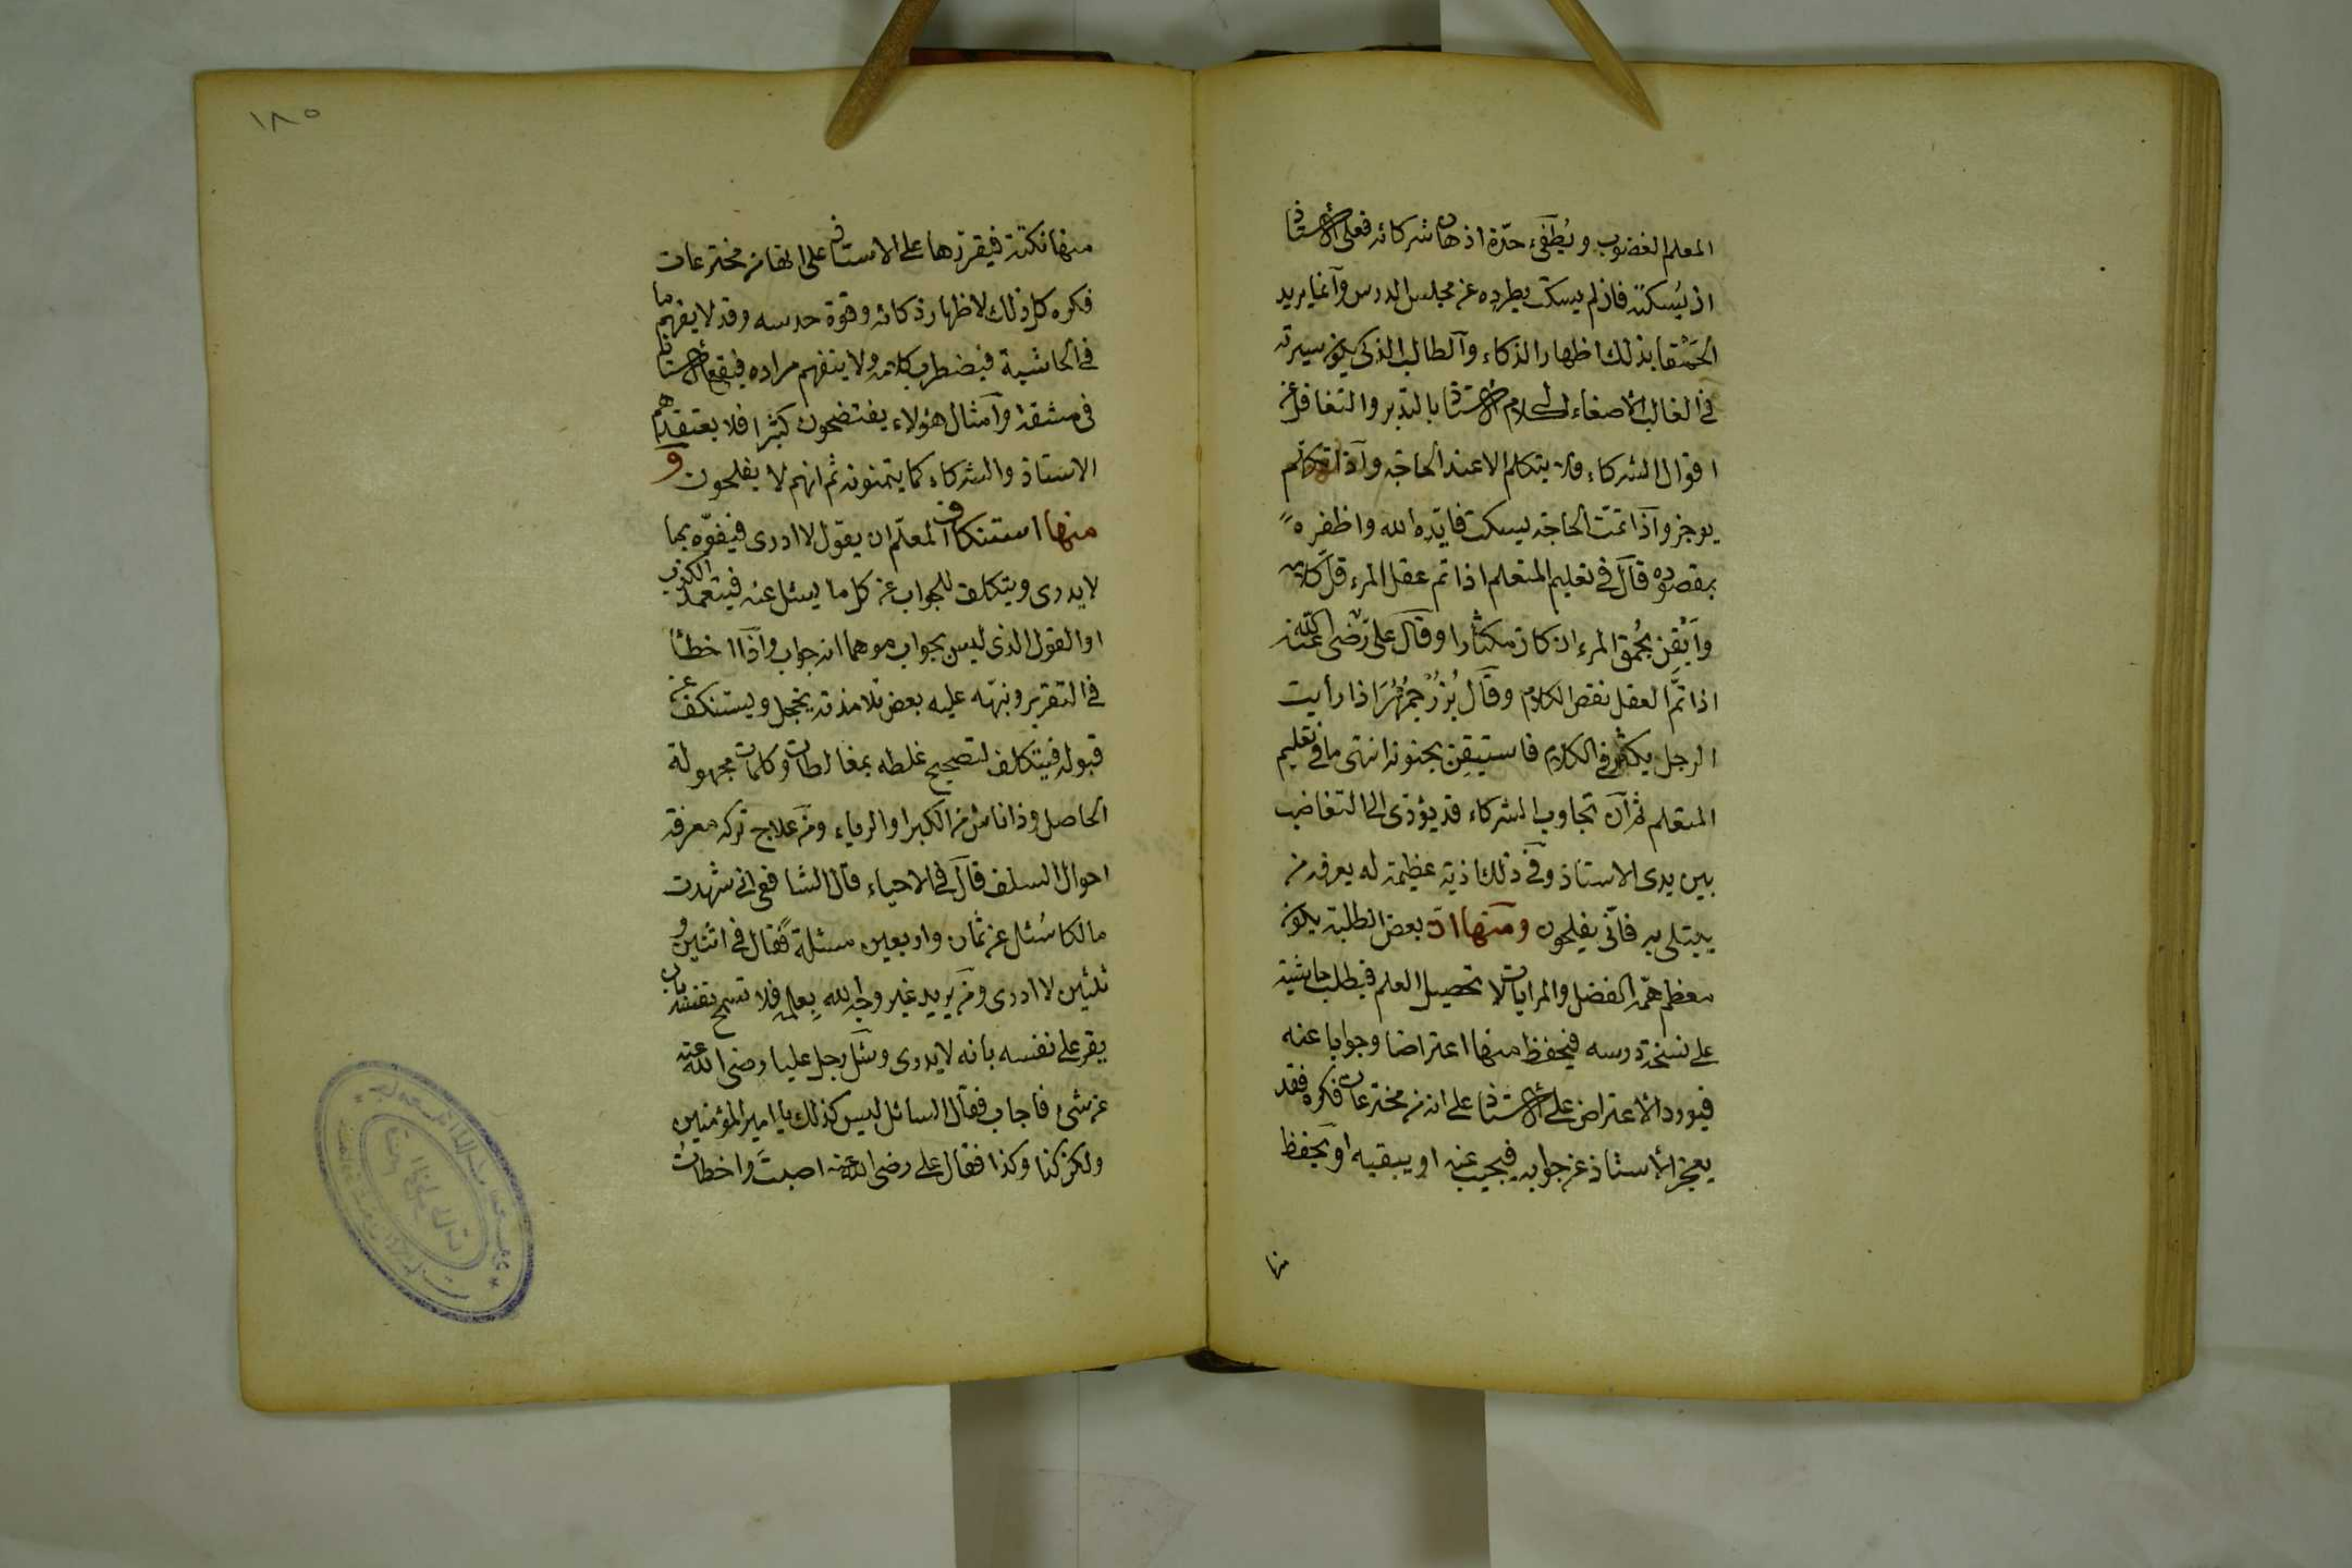 المعلم الغضوب ويُطفَىء حدّة اذهان شركائه فعلى الأستاذ
ان يُسكته فان لم يسكت يطرده عن مجلس الدرس وآنما يريد
الحمقا بذلك اظهار الذكاء وآلطالب الذكى يكون سيرته
فى الغالب الأصغاء لكلام الأستاذ بالتدبر والتغافل عن
اقوال الشركاء فلا يتكلم الا عند الحاجة وآذا تكلم
يوجز وآذا تمّت الحاجة يسكت فايّده الله واظفره
بمقصوده قآل فى تعليم المتعلم اذا تم عقل المرء قلّ كلامه
وأيقِن بحُمق المرء ان كان مكثارا وقآل على رضى الله عنه
اذا تمّ العقل نقص الكلام وقآل بُزُرْجمهُر اذا رأيت
الرجل يكثر فى الكلام فاستيقِن بجنونه انتهى ما فى تعليم
المتعلم ثم آن تجاوب الشركاء قد يؤدى الى التغاضب
بين يدى الاستاذ وفى ذلك اذية عظيمة له يعرفه من
يبتلى به فانّى يفلحون ومنها انّ بعض الطلبة يكون
معظم همّه الفضل والمرايات لا تحصيل العلم فيطلب حاشية
على نسخة درسه فيحفظ منها اعتراضا وجوابا عنه
فيورد الاعتراض على الأستاذ على انه من مخترعات فكره فقد
يعجز الأستاذ عن جوابه فيجيب عنه او يبقيه او يحفظ
منها
١٨٥
منها نكتة فيقررها على الاستاذ على انها من مخترعات
فكره كل ذلك لاظهار ذكائه وقوة حدسه وقد لا يفهم ما
فى الحاشية فيضطرب كلامه ولا يتفهم مراده فيقع الأستاذ
فى مشقة وآمثال هؤلاء يفتضحون كثيرا فلا يعتقدهم
الاستاذ والشركاء كما يتمنونه ثم انهم لا يفلحون و
منها استنكاف المعلّم ان يقول لا ادرى فيفوّه بما
لا يدرى ويتكلف للجواب عن كل ما يسئل عنه فيتعمد الكذب
او القول الذى ليس بجواب موهما انه جواب وآذا اخطأ
فى التقرير ونبّه عليه بعض تلامذته يخجل ويستنكف عن
قبوله فيتكلف لتصحيح غلطه بمغالطات وكلمات مجهولة
الحاصل وذا ناش من الكبر او الرياء ومن علاج تركه معرفة
احوال السلف قآل فى الاحياء قال الشافعى انى شهدت
مالكا سُئل عن ثمان واربعين مسئلة فقال فى اثنين و
ثلثين لا ادرى ومن يريد غير وجه الله بعلمه فلا تسمح نفسه بان
يقر على نفسه بانه لا يدرى وسئل رجل عليا رضى الله عنه
عن شىء فاجاب فقآل السائل ليس كذلك يا امير المؤمنين
ولكن كذا وكذا فقال على رضى الله عنه اصبتَ واخطاتُ